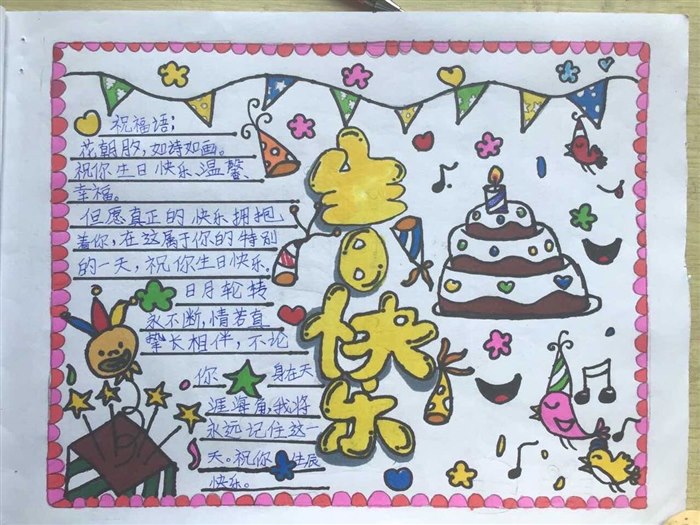 祝福语;
花朝月夕,如诗如画。
祝你生日快乐、温馨、
幸福。
但愿真正的快乐拥抱
着你,在这属于你的特别
的一天,祝你生日快乐.
日月轮转
永不断,情若真
挚长相伴,不论
你身在天
涯海角,我将
永远记住这一
天。祝你生辰
快乐。
生
日
快
乐